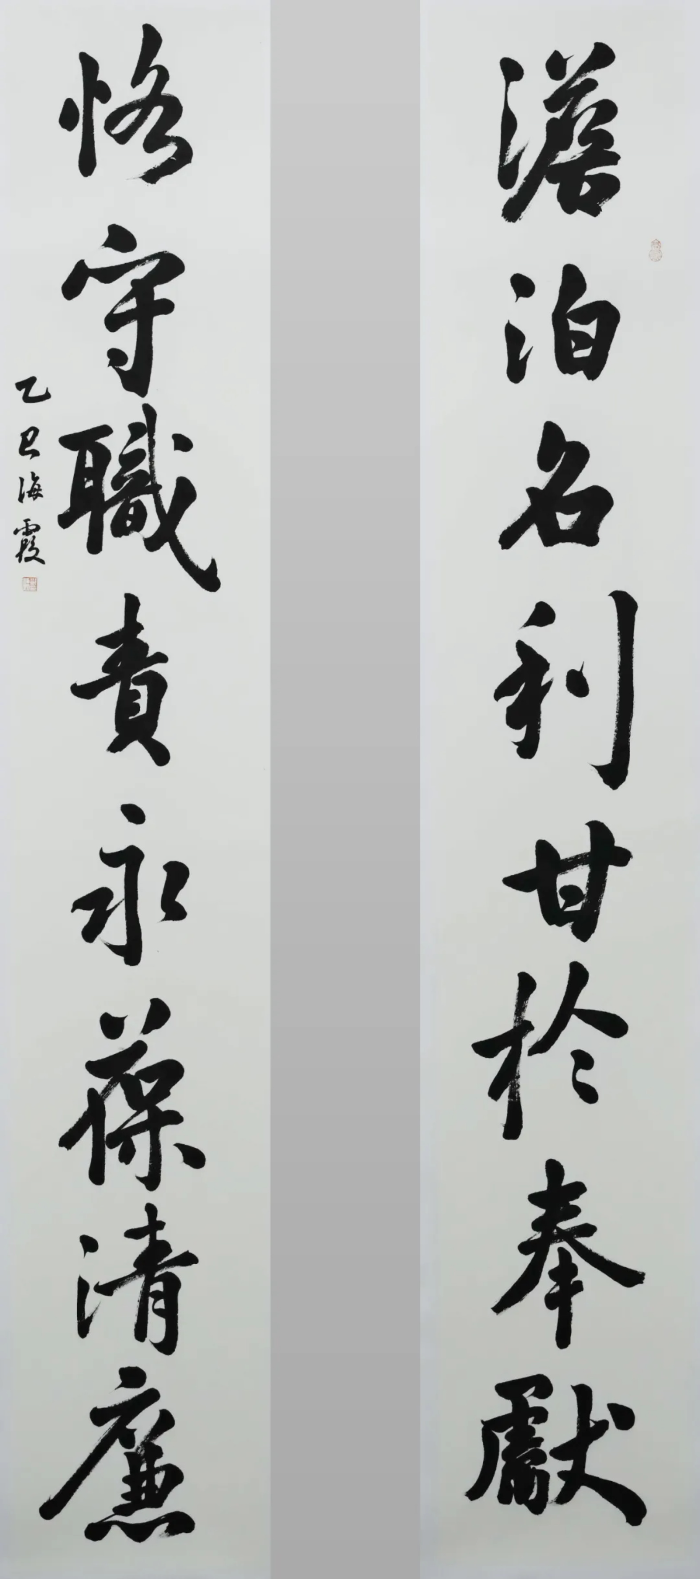 澹泊名利甘於奉獻
恪守職責永葆清廉
乙巳海霞